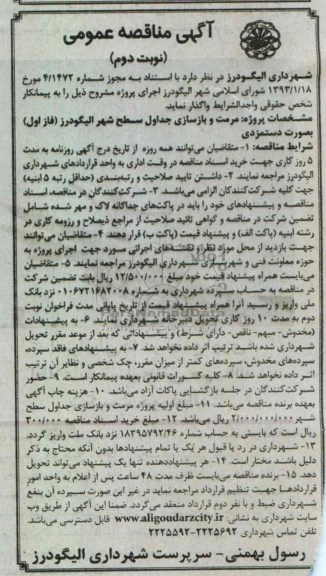 آگهی مناقصه عمومی
(نوبت دوم)
شهرداری الیگودرز در نظر دارد با استناد به مجوز شماره ۴/۱۴۷۲ مورخ
۱۳۹۳/۱/۱۸ شورای اسلامی شهر الیگودرز اجرای پروژه مشروح ذیل را به پیمانکار
شخص حقوقی واجدالشرایط واگذار نماید.
مشخصات پروژه: مرمت و بازسازی جداول سطح شهر الیگودرز (فاز اول)
بصورت دستمزدی
شرایط مناقصه: ۱- متقاضیان می‌توانند همه روزه از تاریخ درج آگهی روزنامه به مدت
۵ روز کاری جهت خرید اسناد مناقصه در وقت اداری به واحد قراردادهای شهرداری
الیگودرز مراجعه نمایند. ۲- داشتن تایید صلاحیت و رتبه‌بندی (حداقل رتبه ۵ ابنیه)
جهت کلیه شرکت‌کنندگان الزامی می‌باشد. ۳- شرکت‌کنندگان در مناقصه، اسناد
مناقصه و پیشنهادهای خود را باید در پاکت‌های جداگانه لاک و مهر شده شامل
تضمین شرکت در مناقصه و گواهی تائید صلاحیت از مراجع ذیصلاح و رزومه کاری در
رشته ابنیه (پاکت الف) و پیشنهاد قیمت (پاکت ب) قرار دهند. ۴- متقاضیان می‌توانند
جهت بازدید از محل مورد نظر و نقشه‌های اجرائی مورد جهت اجرای پروژه به
حوزه معاونت فنی و شهرسازی شهرداری الیگودرز مراجعه نمایند. ۵- متقاضیان
می‌بایست همراه پیشنهاد قیمت خود مبلغ ۱۲/۵۰۰/۰۰۰ ریال بابت تضمین شرکت
در مناقصه به حساب سپرده شهرداری به شماره ۰۱۰۶۷۲۱۶۸۲۰۰۸ نزد بانک
ملی واریز و رسید آنرا همراه پیشنهاد قیمت از تاریخ پایانی مدت فراخوان نوبت
دوم به مدت ۱۰ روز کاری تحویل دبیرخانه شهرداری نمایند. ۶- به پیشنهادات
(مخدوش- مبهم- ناقص- دارای شرط) و پیشنهاداتی که بعد از موعد مقرر تحویل
شهرداری شده باشد، ترتیب اثر داده نخواهد شد. ۷- به پیشنهادهای فاقد سپرده،
سپرده‌های مخدوش، سپرده‌های کمتر از میزان مقرر، چک شخصی و نظایر آن ترتیب
اثر داده نخواهد شد. ۸- کلیه کسورات قانونی بعهده پیمانکار است. ۹- حضور
شرکت‌کنندگان در جلسه بازگشایی پاکات آزاد می‌باشد. ۱۰- هزینه چاپ آگهی
بعهده برنده مناقصه می‌باشد. ۱۱- مبلغ اولیه پروژه مرمت و بازسازی جداول سطح
شهر ۲/۰۰۰/۰۰۰/۰۰۰ ریال می‌باشد. ۱۲- مبلغ خرید اسناد مناقصه ۳۰۰/۰۰۰
ریال است که بایستی به حساب شماره ۱۸۳۹۵۷۹۲/۴۶ نزد بانک ملت واریز گردد.
۱۳- شهرداری در رد یا قبول هر یک یا تمام پیشنهادها بدون آنکه محتاج به ذکر
دلیل باشد مختار است. ۱۴- هر پیشنهاددهنده تنها یک پیشنهاد می‌تواند تحویل
دهد. ۱۵- برنده مناقصه می‌بایست ظرف مدت ۴۸ ساعت پس از اعلام به واحد امور
قراردادها جهت تنظیم قرارداد مراجعه نماید در غیر این صورت سپرده آن بنفع
شهرداری ضبط و با نفر دوم قرارداد منعقد می‌گردد. ضمنا این آگهی از طریق وب
سایت شهرداری به نشانی: www.aligoudarzcity.ir قابل دسترسی می‌باشد.
تلفن تماس شهرداری ۲۲۲۵۶۹۲-۲۲۲۵۵۹۲
رسول بهمنی- سرپرست شهرداری الیگودرز